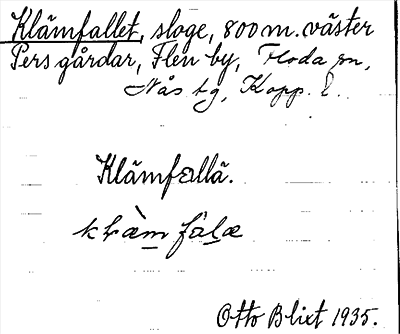 Klämfallet, sloge, 800 m. väster
Pers gårdar, Flen by, Floda sn,
Nås tg, Kopp. l.
Klämfallä.
Otto Blixt 1935.